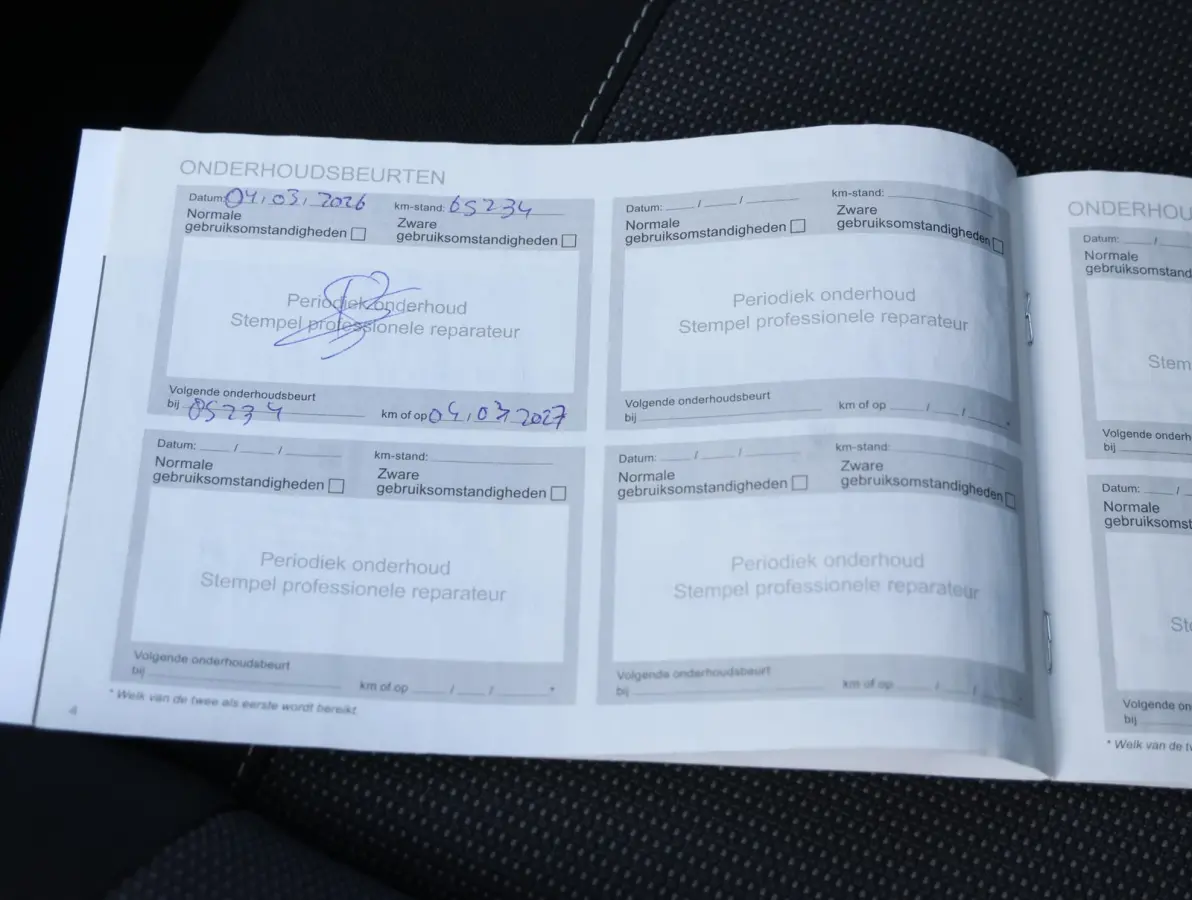 ONDERHOUDSBEURTEN
Datum: 04.03.2026 km-stand: 65234
Normale gebruiksomstandigheden
Zware gebruiksomstandigheden
Periodiek onderhoud
Stempel professionele reparateur
Volgende onderhoudsbeurt
bij 85234 km of op 04.03.2027
Datum: / / km-stand:
Normale gebruiksomstandigheden
Zware gebruiksomstandigheden
Periodiek onderhoud
Stempel professionele reparateur
Volgende onderhoudsbeurt
bij km of op / / *
Datum: / / km-stand:
Normale gebruiksomstandigheden
Zware gebruiksomstandigheden
Periodiek onderhoud
Stempel professionele reparateur
Volgende onderhoudsbeurt
bij km of op / / *
Datum: / / km-stand:
Normale gebruiksomstandigheden
Zware gebruiksomstandigheden
Periodiek onderhoud
Stempel professionele reparateur
Volgende onderhoudsbeurt
bij km of op / /
* Welk van de twee als eerste wordt bereikt.
4
ONDERHOU
Datum: /
Normale
gebruiksomstand
Stem
Volgende onderh
bij
Datum: /
Normale
gebruiksomst
Ste
Volgende on
bij
* Welk van de tw